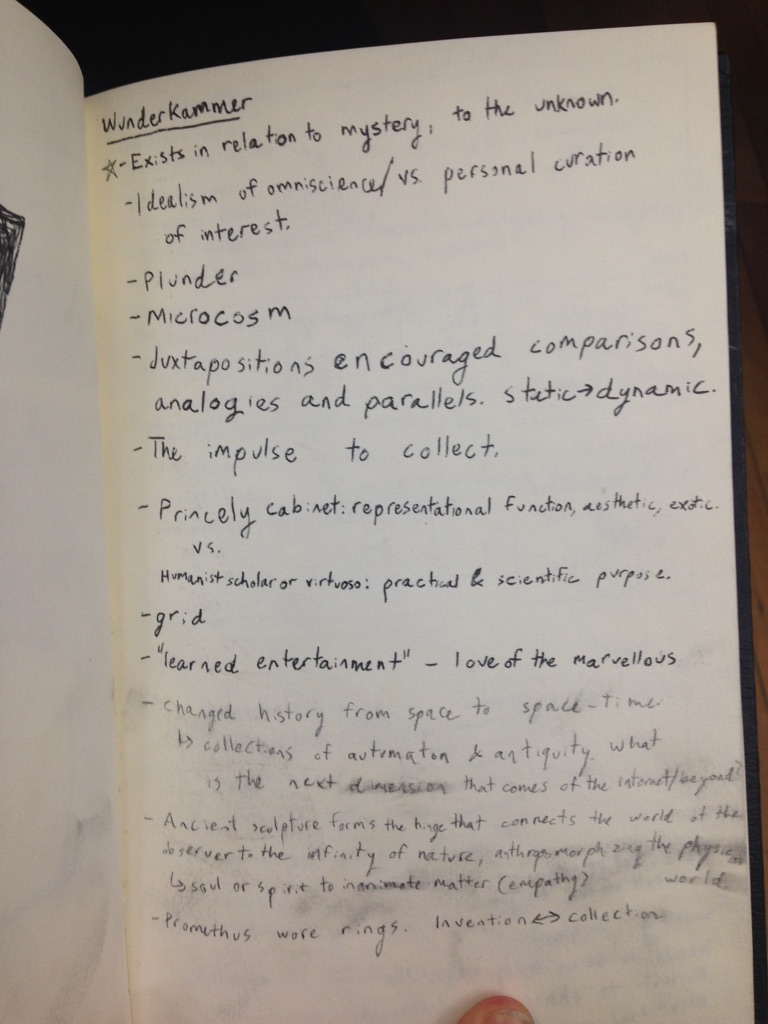 WunderKammer
☆-Exists in relation to mystery; to the unknown.
-Idealism of omniscience/vs. personal curation
of interest.
-Plunder
-Microcosm
-Juxtapositions encouraged comparisons,
analogies and parallels. Static→dynamic.
-The impulse to collect.
-Princely cabinet: representational function, aesthetic, exotic.
vs.
Humanist scholar or virtuoso: practical & scientific purpose.
-grid
-"learned entertainment" - love of the marvellous
-Changed history from space to space-time.
↳ collections of automaton & antiquity. What
is the next dimension that comes of the internet/beyond?
-Ancient sculpture forms the hinge that connects the world of the
observer to the infinity of nature, anthropomorphizing the physical
↳ soul or spirit to inanimate matter (empathy?) world.
-Promethus wore rings. Invention↔collection